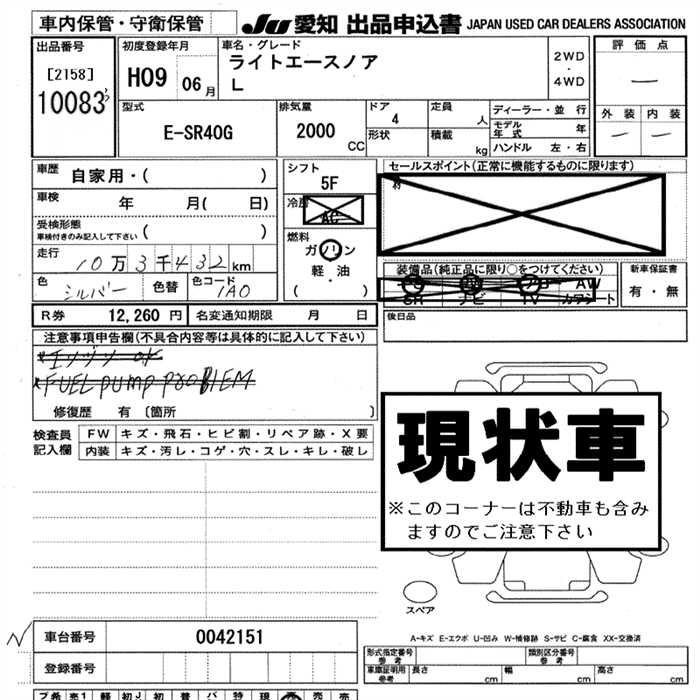 車内保管・守衛保管 JU 愛知 出品申込書 JAPAN USED CAR DEALERS ASSOCIATION
出品番号 初度登録年月 車名・グレード 評価点
[2158] H09 06月 ライトエースノア 2WD ・ 4WD
10083 L
外装 内装
型式 排気量 ドア 定員 ディーラー・並行
E-SR40G 2000 CC 4 人 モデル年式 年
形状 積載 kg ハンドル 左・右
車歴 自家用・( ) シフト セールスポイント(正常に機能するものに限ります)
5F
車検 年 月( 日) 冷房
AC
受検形態
車検付きのみ記入して下さい ( ) 燃料
ガソリン
走行 10万3千432km 軽・油 装備品(純正品に限り○をつけてください) 新車保証書
色 シルバー 色替 色コード 1A0 ( ) AW 有・無
SR ナビ TV カワシート
R券 12,260円 名変通知期限 月 日 後日品
注意事項申告欄(不具合内容等は具体的に記入して下さい)
*エンジン OK
*FUEL PUMP PROBLEM
修復歴 有 〔箇所 〕
検査員 FW キズ・飛石・ヒビ割・リペア跡・X要
記入欄 内装 キズ・汚レ・コゲ・穴・スレ・キレ・破レ
現状車
※このコーナーは不動車も含み
ますのでご注意下さい
スペア
A-キズ E-エクボ U-凹み W-補修跡 S-サビ C-腐食 XX-交換済
車台番号 0042151
登録番号
形式指定番号 参考 類別区分番号 参考
車庫証明用 参考 長さ cm 幅 cm 高さ cm